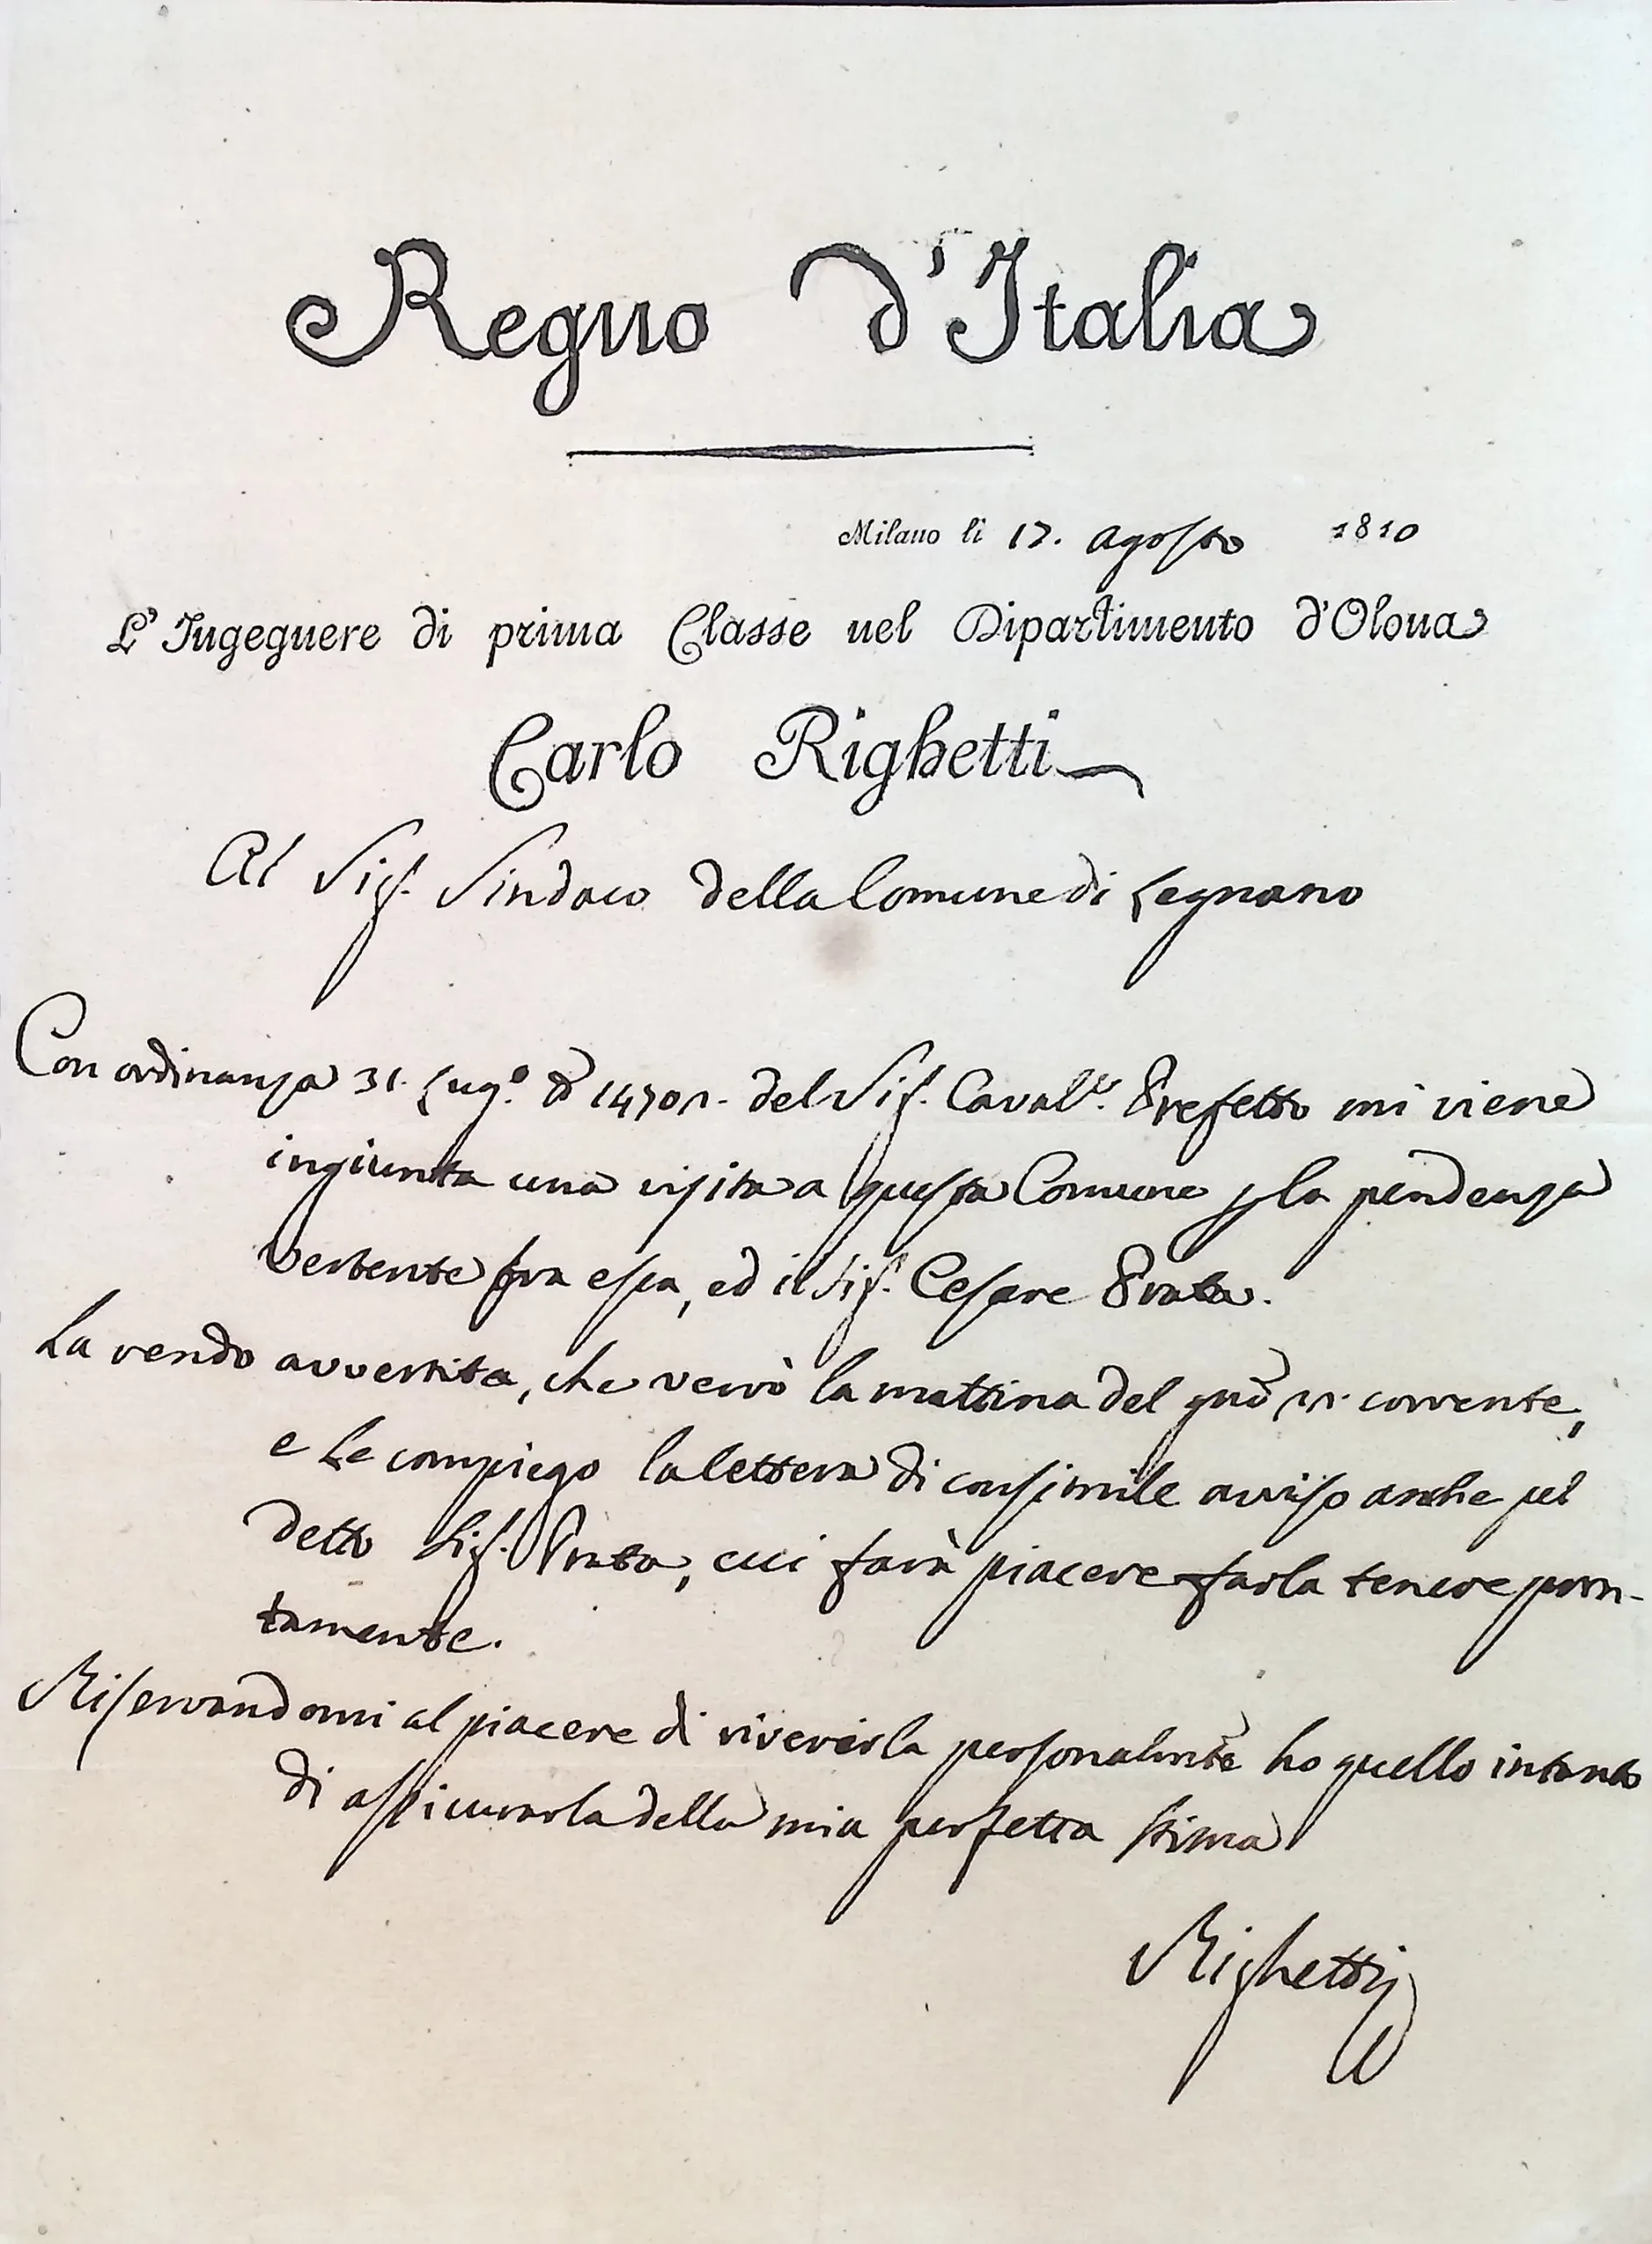 Regno d'Italia
Milano li 17. Agosto 1810
L'Ingegnere di prima Classe nel Dipartimento d'Olona
Carlo Righetti
Al Sig. Sindaco della Comune di Legnano
Con ordinanza 31. Lug.º del Sig. Caval.re Prefetto mi viene
ingiunta una visita a questa Comune la pendenza
vertente fra essa, ed il Sig. Cesare Prata.
La rendo avvertita, che verrò la mattina del corrente,
e Le compiego la lettera di consimile avviso anche pel
detto Sig. Prata, cui farà piacere farla tenere pron-
tamente.
Riservandomi al piacere di riverirla personalmte ho quello intanto
di assicurarla della mia perfetta stima
Righetti